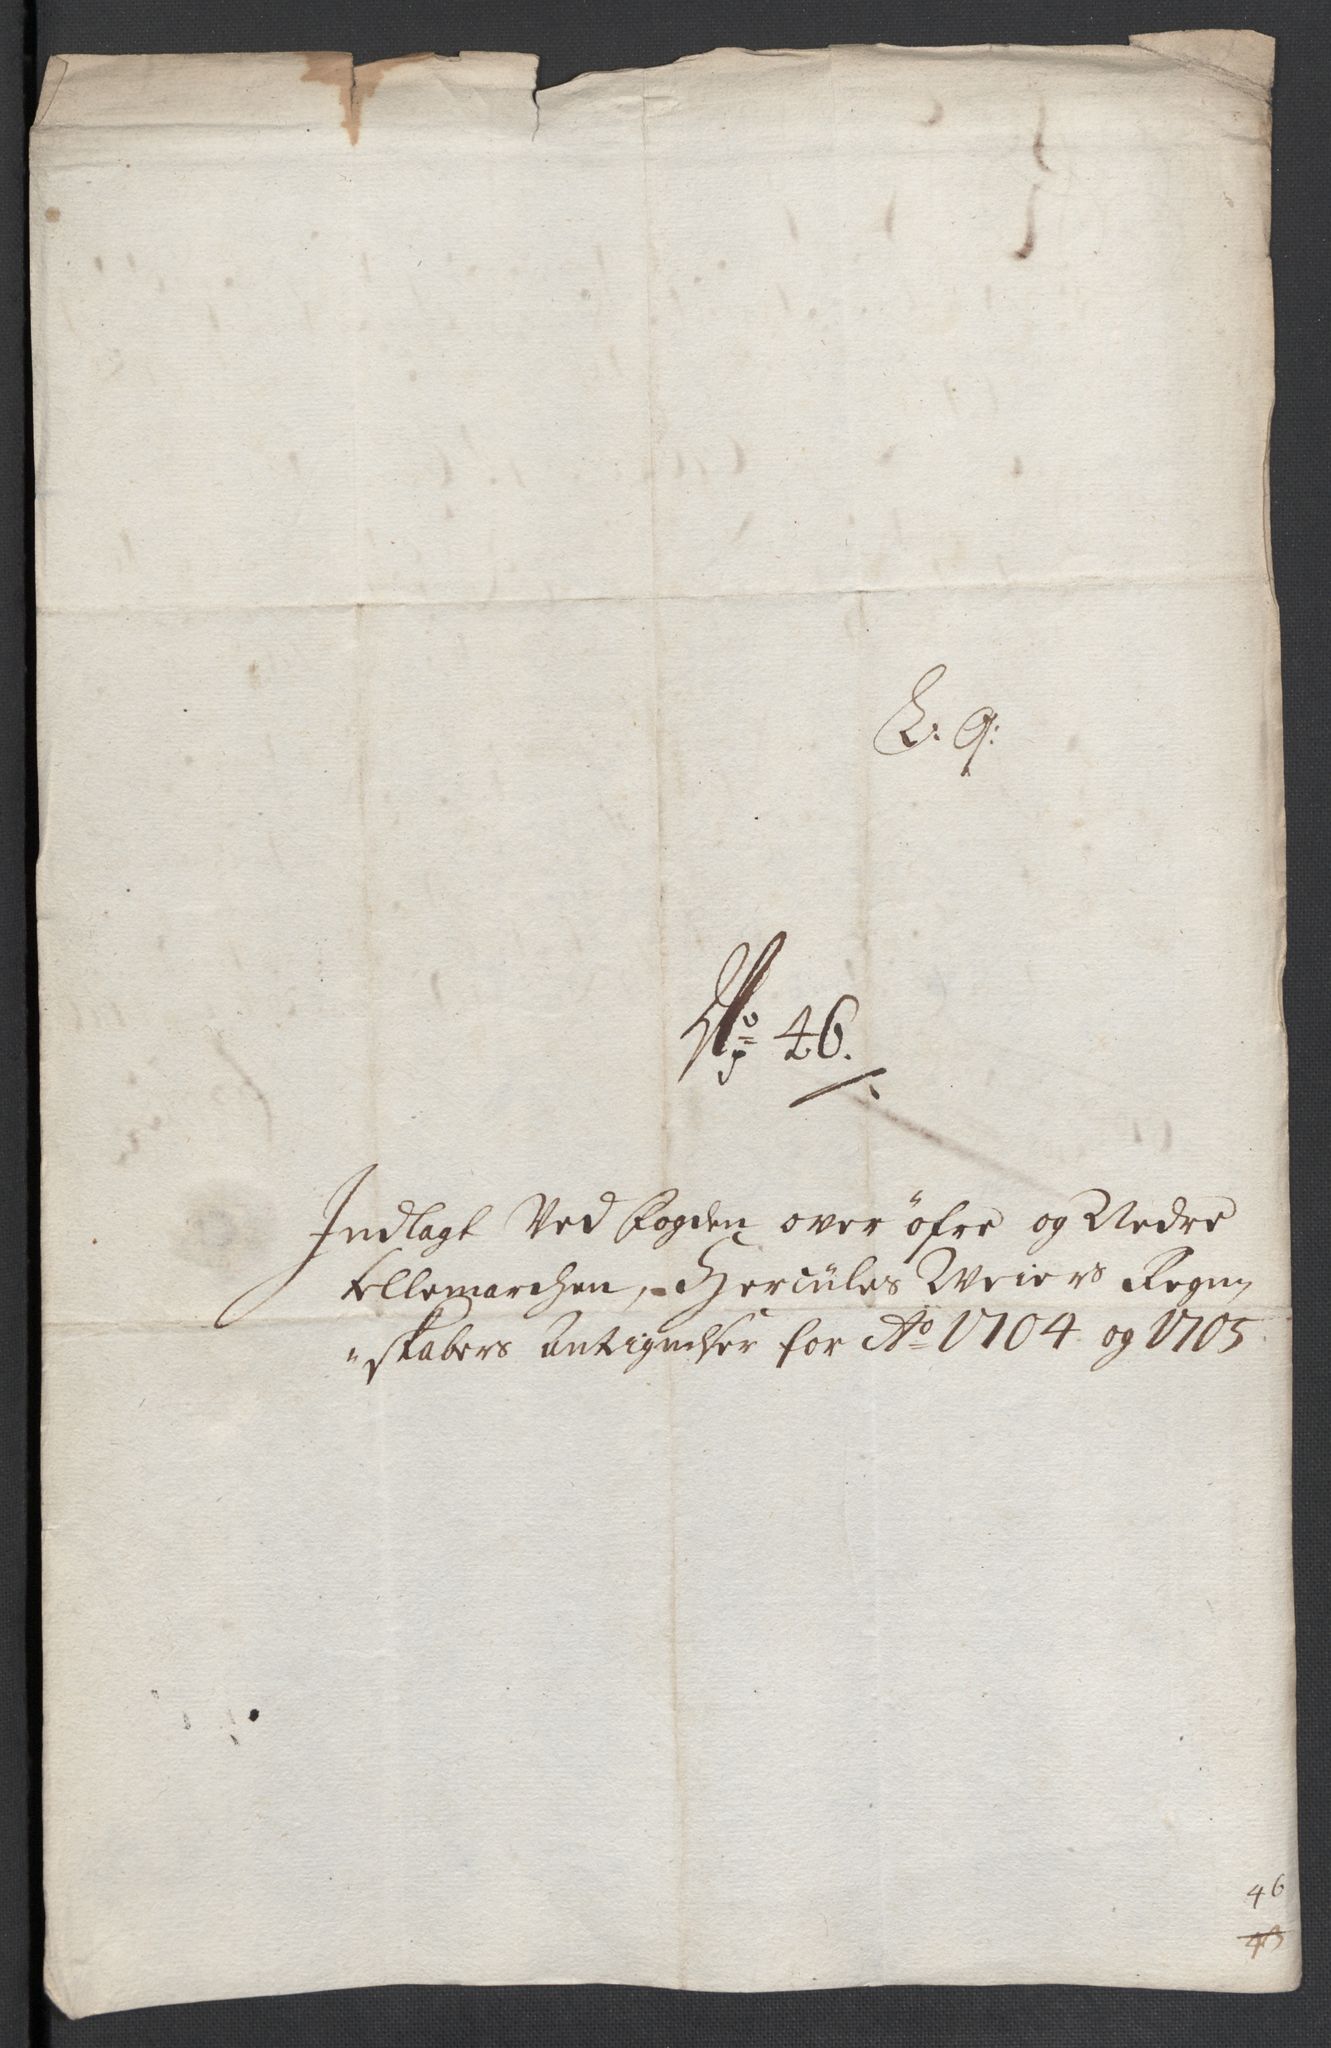 L: q:
No 46.
Indlagt Ved fogden over öfre og Nedre
tellemarchen, Hercüles Weiers Regn,
"skabers Antignelser for Ao 1704 og 1705
46
43